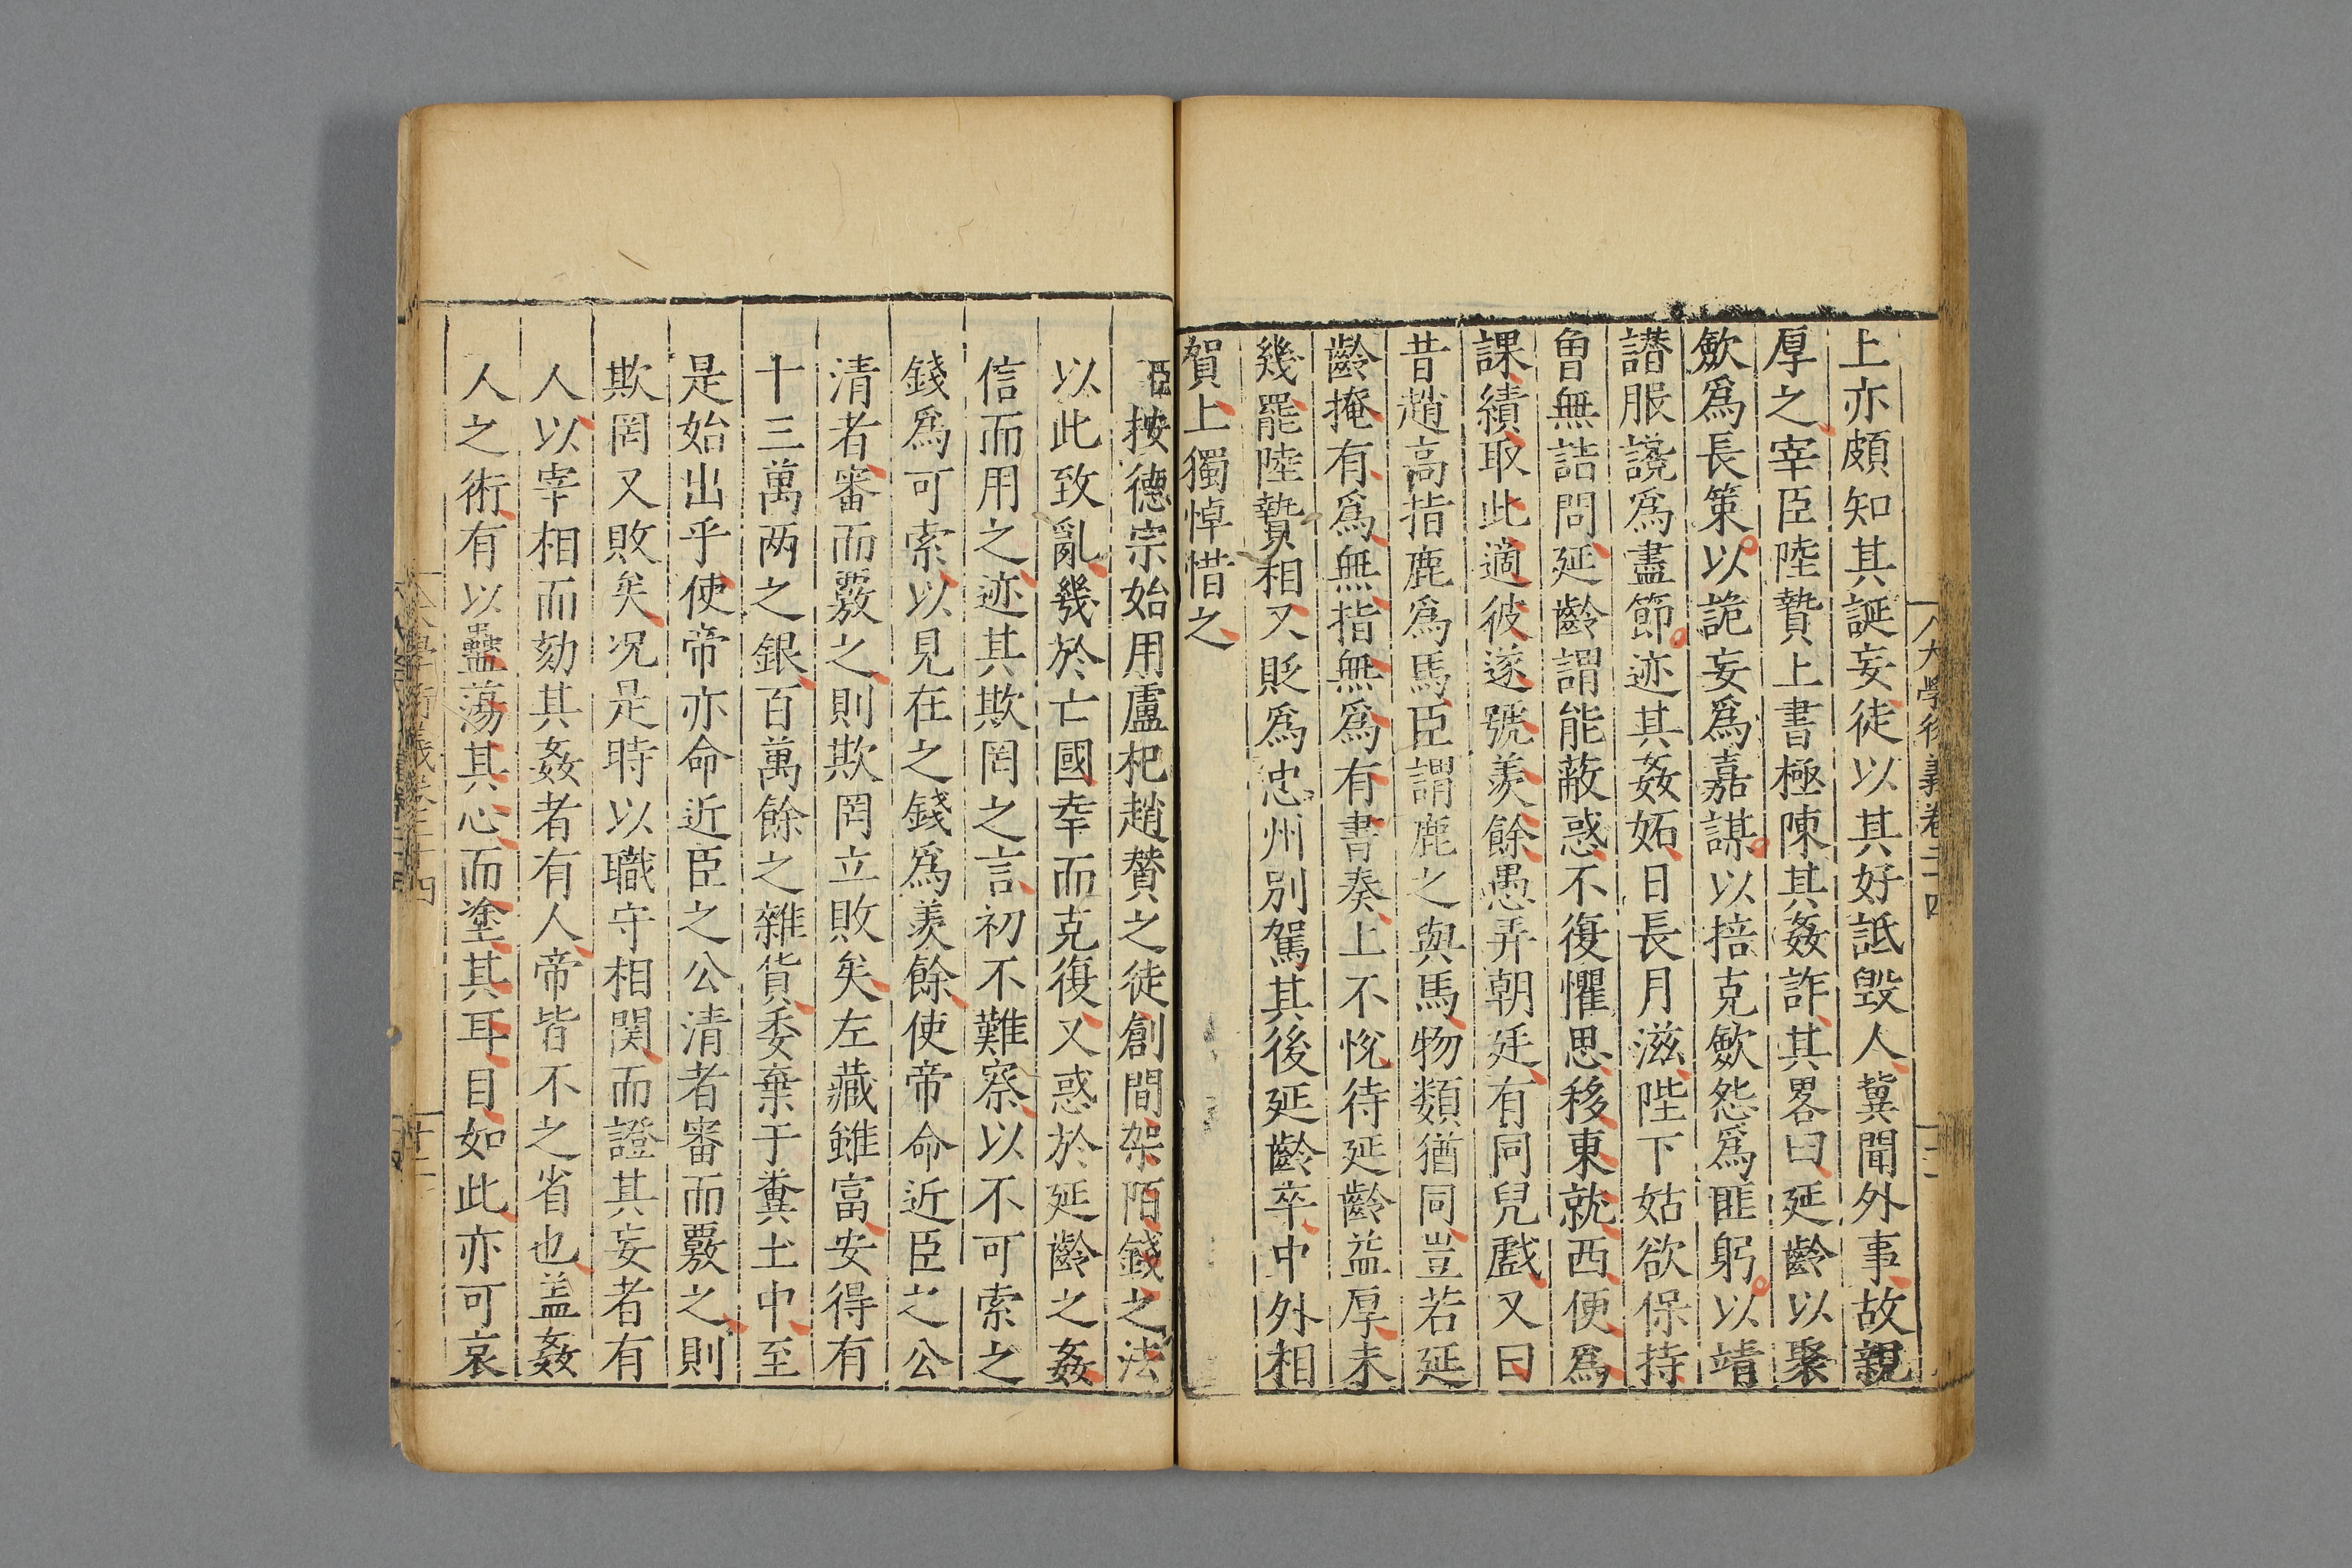 上亦頗知其誕妄徒以其好詆毀人冀聞外事故親
厚之宰臣陸贄上書極陳其姦詐其畧曰延齡以聚
歛爲長策以詭妄爲嘉謀以掊克歛怨爲匪躬以靖
譖服讒爲盡節迹其姦妬日長月滋陛下姑欲保持
曾無詰問延齡謂能蔽惑不復懼思移東就西便爲
課績取此適彼遂號羡餘愚弄朝廷有同兒戲又曰
昔趙高指鹿爲馬臣謂鹿之與馬物類猶同豈若延
齡掩有爲無指無爲有書奏上不悅待延齡益厚未
幾罷陸贄相又貶爲忠州別駕其後延齡卒中外相
賀上獨悼惜之
臣按德宗始用盧杞趙贊之徒創間架陌錢之法
以此致亂幾於亡國幸而克復又惑於延齡之姦
信而用之迹其欺罔之言初不難察以不可索之
錢爲可索以見在之錢爲羡餘使帝命近臣之公
清者審而覈之則欺罔立敗矣左藏雖富安得有
十三萬两之銀百萬餘之雜貨委棄于糞土中至
是始出乎使帝亦命近臣之公清者審而覈之則
欺罔又敗矣况是時以職守相関而證其妄者有
人以宰相而劾其姦者有人帝皆不之省也盖姦
人之術有以蠱蕩其心而塗其耳目如此亦可哀